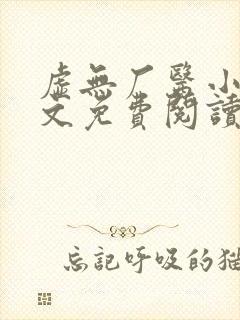 虚無厂醫小
文免費閱讀
忘记呼吸的猫